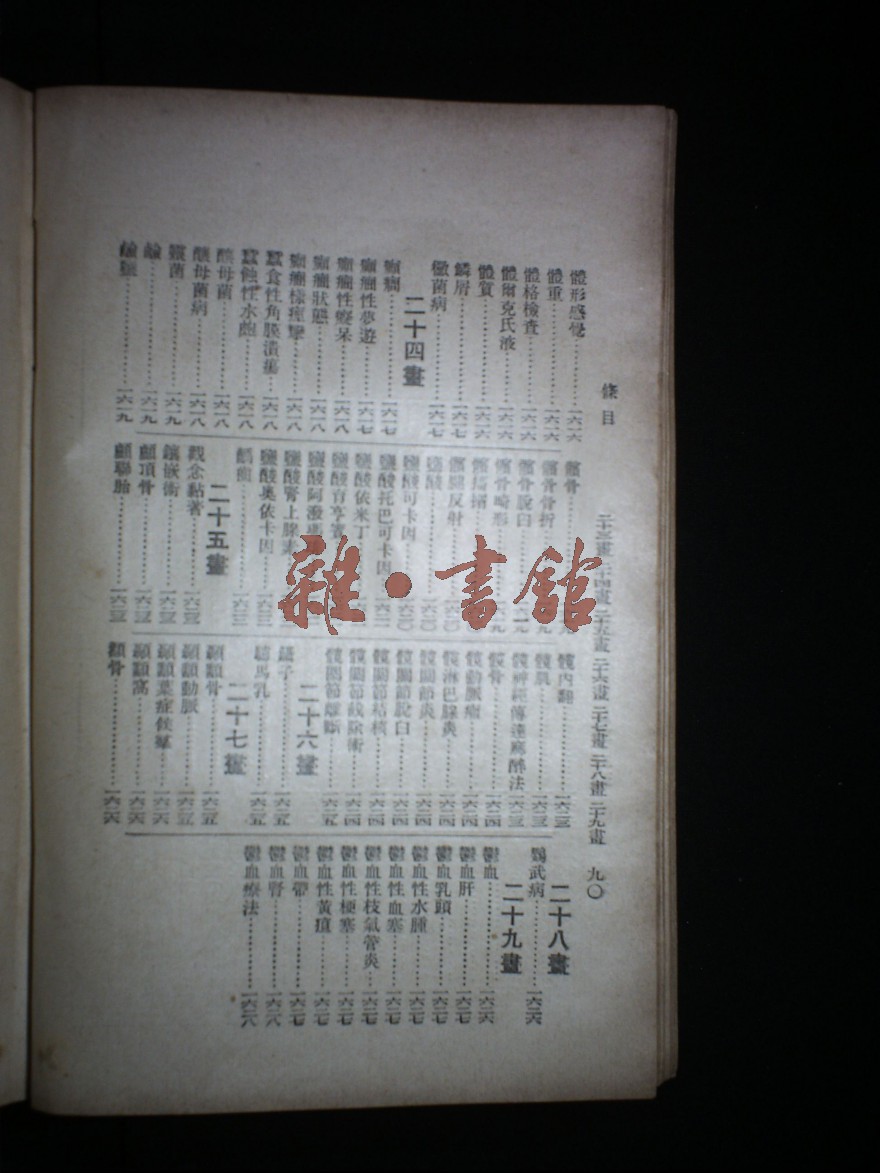 條目
二十三畫 二十四畫 二十五畫 二十六畫 二十七畫 二十八畫 二十九畫
九〇
體形感覺 一六一六
體重 一六一六
體格檢查 一六一六
體爾克氏液 一六一六
體質 一六一六
鱗屑 一六一七
黴菌病 一六一七
二十四畫
癲癇 一六一七
癲癇性夢遊 一六一七
癲癇性癡呆 一六一八
癲癇狀態 一六一八
癲癇樣痙攣 一六一八
蠶食性角膜潰瘍 一六一八
蠶蝕性水皰 一六一八
釀母菌 一六一八
釀母菌病 一六一八
靈菌 一六一九
鹼 一六一九
鹼血 一六一九
髕骨
髕骨骨折
髕骨脫臼
髕骨畸形
髕
髕腱反射
鹽酸
鹽酸可卡因
鹽酸托巴可卡因
鹽酸依米丁
鹽酸
鹽酸阿潑嗎
鹽酸腎上腺素
鹽酸奧依卡因
二十五畫
觀念黏著 一六二三
鑲嵌術 一六二三
顱頂骨 一六二三
顱聯胎 一六二三
髖內翻 一六二三
髖肌 一六二三
髖神經傳達麻醉法 一六二三
髖骨 一六二四
髖動脈瘤 一六二四
髖淋巴腺炎 一六二四
髖關節炎 一六二四
髖關節脫臼 一六二四
髖關節結核 一六二四
髖關節截除術 一六二四
髖關節離斷 一六二五
二十六畫
鑷子 一六二五
驢馬乳 一六二五
二十七畫
顳顬骨 一六二五
顳顬動脈 一六二五
顳顬葉症候羣 一六二六
顳顬窩 一六二六
顴骨 一六二六
二十八畫
鸚鵡病 一六二六
二十九畫
鬱血 一六二六
鬱血肝 一六二七
鬱血乳頭 一六二七
鬱血性水腫 一六二七
鬱血性血塞 一六二七
鬱血性枝氣管炎 一六二七
鬱血性梗塞 一六二七
鬱血性黃疸 一六二七
鬱血帶 一六二七
鬱血腎 一六二八
鬱血療法 一六二八
雜·書館